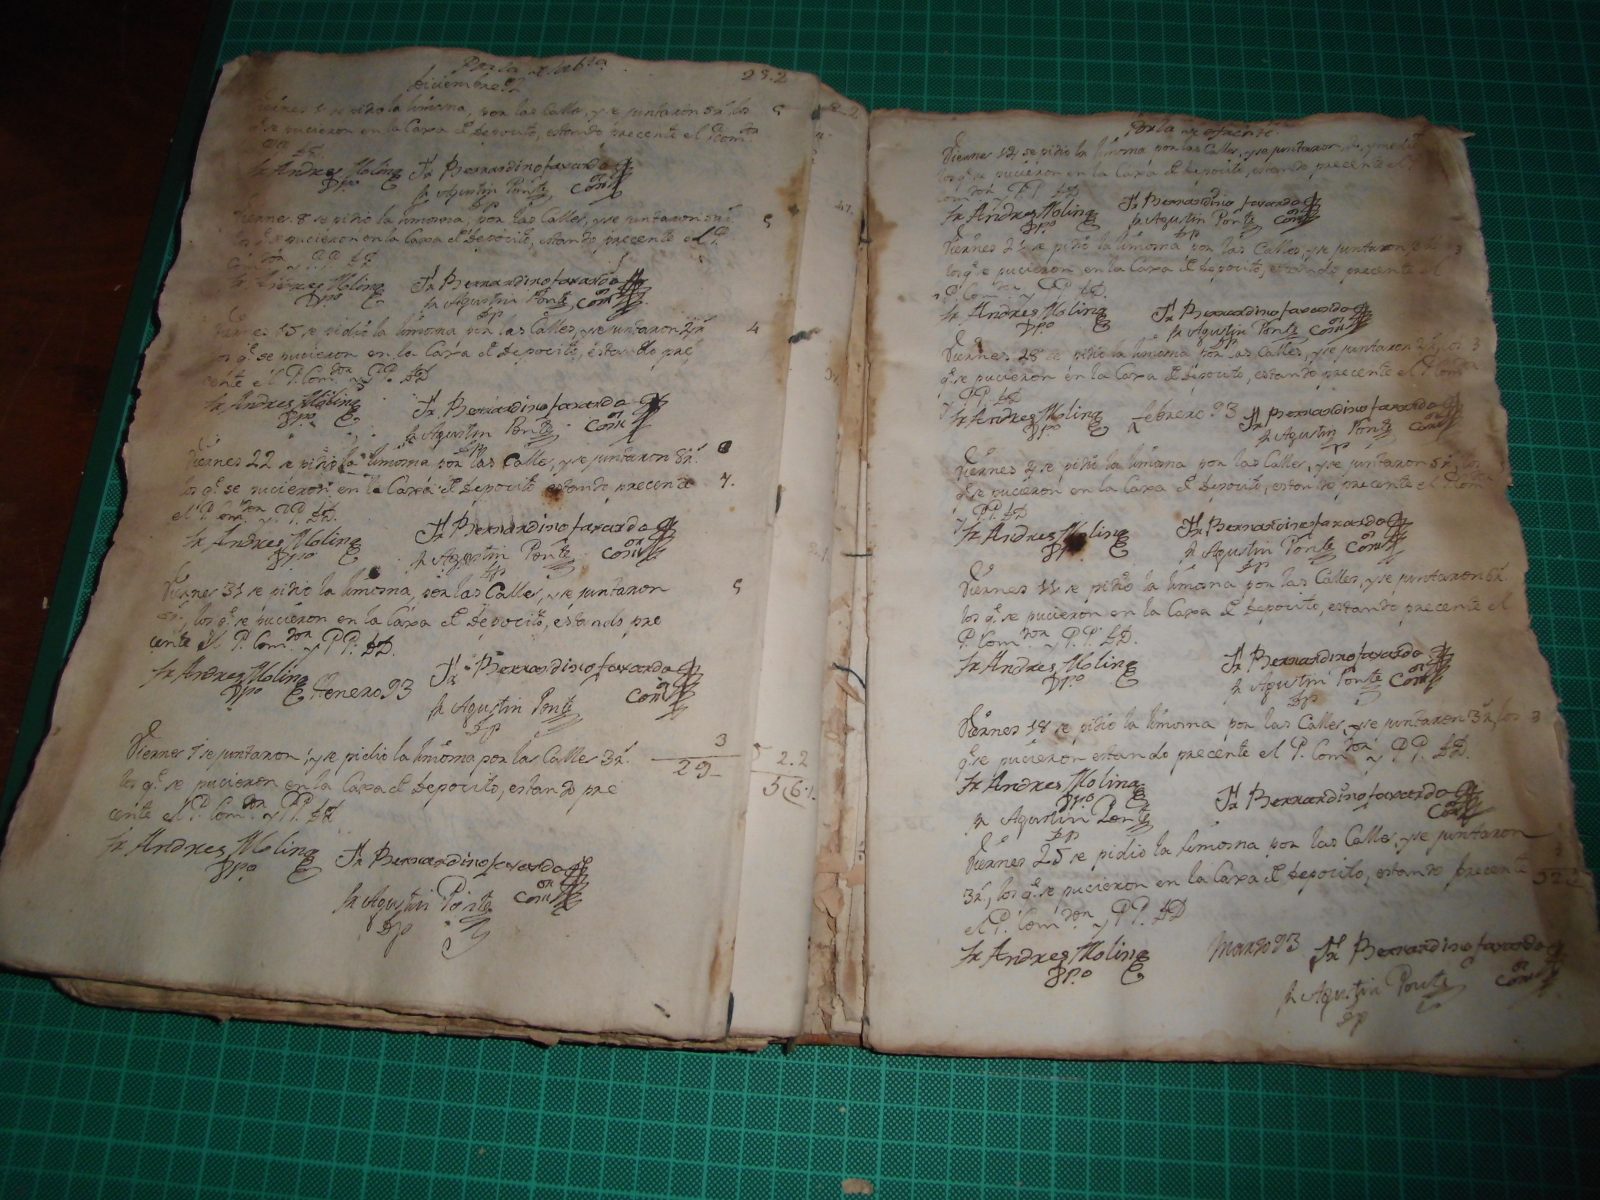 Por la
diciembre 92
23.2
Viernes 1 se pidio la limosna, por las Calles, y se juntaron 5 r.^s los 5
q.^e se pucieron en la Caxa el deposito, estando precente el P. Com.^dor
Fr Andres Molina Fr Bernardino faxardo
Dpo Fr Agustin Ponte Com.^or
Dp
Viernes 8 se pidio la limosna, por las Calles, y se juntaron 5
los q.^e se pucieron en la Caxa el deposito, estando precente el P.
Com.^dor y P.P. DD
Fr Andres Molina Fr Bernardino faxardo
Dpo Fr Agustin Ponte Com.^or
Dp
Viernes 15 se pidio la limosna por las Calles, y se juntaron 4
los q.^e se pucieron en la Caxa el deposito, estando pre
cente el P. Com.^dor y P.P. DD
Fr Andres Molina Fr Bernardino faxardo
Dpo Fr Agustin Ponte Com.^or
Dp
Viernes 22 se pidio la limosna por las Calles, y se juntaron
los q.^e se pucieron en la Caxa el deposito estando precente 7.
el P. Com.^dor y P.P. DD.
Fr Andres Molina Fr Bernardino faxardo
Dpo Fr Agustin Ponte Com.^or
Dp
Viernes se pidio la limosna, por las Calles, y se juntaron 5
los q.^e se pucieron en la Caxa el deposito, estando pre
cente el P. Com.^dor y P.P. DD.
Fr Andres Molina Enero 93 Fr Bernardino faxardo
Dpo Fr Agustin Ponte Com.^or
Dp
Viernes se juntaron, y se pidio la limosna por las Calles 3 r.^s 3
29
los q.^e se pucieron en la Caxa el deposito, estando pre
cente el P. Com.^dor y P.P. DD
Fr Andres Molina Fr Bernardino faxardo
Dpo Fr Agustin Ponte Com.^or
Dp
2.2
56.1.
Por la
Viernes se pidio la limosna por las Calles, y se juntaron
los q.^e se pucieron en la Caxa el deposito, estando precente el P.
Com.^dor P.P. DD
Fr Andres Molina Fr Bernardino faxardo
Dpo Fr Agustin Ponte Com.^or
Dp
Viernes 21 se pidio la limosna por las Calles, y se juntaron 3
los q.^e se pucieron en la Caxa el deposito, estando precente el
P. Com.^dor y P.P. DD.
Fr Andres Molina Fr Bernardino faxardo
Dpo Fr Agustin Ponte Com.^or
Dp
Viernes 28 se pidio la limosna por las Calles, y se juntaron 3
q.^e se pucieron en la Caxa el deposito, estando precente el P. Com.^dor
y P.P. DD
Fr Andres Molina febrero 93 Fr Bernardino faxardo
Dpo Fr Agustin Ponte Com.^or
Dp
Viernes se pidio la limosna por las Calles, y se juntaron 5 r.^s, los
q.^e se pucieron en la Caxa el deposito, estando precente el P. Com.^dor
y P.P. DD
Fr Andres Molina Fr Bernardino faxardo
Dpo Fr Agustin Ponte Com.^or
Dp
Viernes 11 se pidio la limosna por las Calles, y se juntaron
los q.^e se pucieron en la Caxa el deposito, estando precente el
P. Com.^dor y P.P. DD.
Fr Andres Molina Fr Bernardino faxardo
Dpo Fr Agustin Ponte Com.^or
Dp
Viernes 18 se pidio la limosna por las Calles, y se juntaron 3 r.^s, los 3
q.^e se pucieron estando precente el P. Com.^dor y P.P. DD.
Fr Andres Molina Fr Bernardino faxardo
Dpo Com.^or
Fr Agustin Ponte
Dp
Viernes 25 se pidio la limosna por las Calles, y se juntaron
3 r.^s, los q.^e se pucieron en la Caxa el deposito, estando precente
el P. Com.^dor y P.P. DD
Fr Andres Molina Marzo 93 Fr Bernardino faxardo
Dpo Fr Agustin Ponte Com.^or
Dp